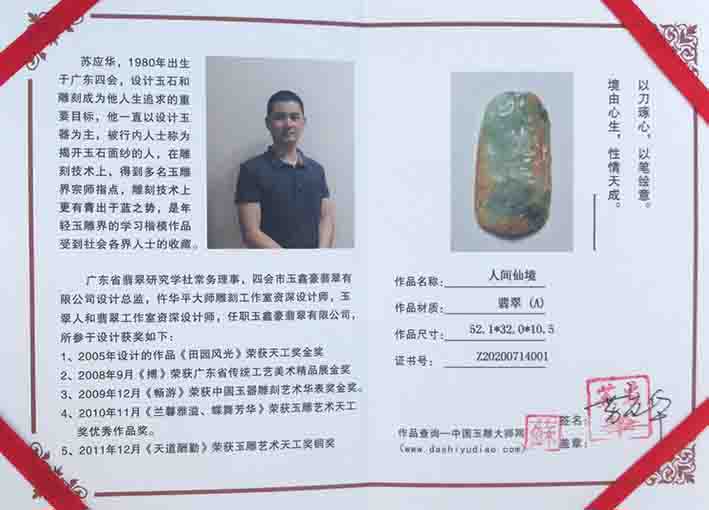 苏应华，1980年出生
于广东四会，设计玉石和
雕刻成为他人生追求的重
要目标，他一直以设计玉
器为主，被行内人士称为
揭开玉石面纱的人，在雕
刻技术上，得到多名玉雕
界宗师指点，雕刻技术上
更有青出于蓝之势，是年
轻玉雕界的学习楷模作品
受到社会各界人士的收藏。
广东省翡翠研究学社常务理事，四会市玉鑫豪翡翠有
限公司设计总监，仵华平大师雕刻工作室资深设计师，玉
翠人和翡翠工作室资深设计师，任职玉鑫豪翡翠有限公司，
所参于设计获奖如下：
1、2005年设计的作品《田园风光》荣获天工奖金奖
2、2008年9月《搏》荣获广东省传统工艺美术精品展金奖
3、2009年12月《畅游》荣获中国玉器雕刻艺术华表奖金奖。
4、2010年11月《兰馨雅溢、蝶舞芳华》荣获玉雕艺术天工
奖优秀作品奖。
5、2011年12月《天道酬勤》荣获玉雕艺术天工奖铜奖
以刀琢心，以笔绘意。
境由心生，性情天成。
作品名称：人间仙境
作品材质：翡翠（A）
作品尺寸：52.1*32.0*10.5
证书号：Z20200714001
签名：
作品查询—中国玉雕大师网
盖章：
（www.dashiyudiao.com）
苏